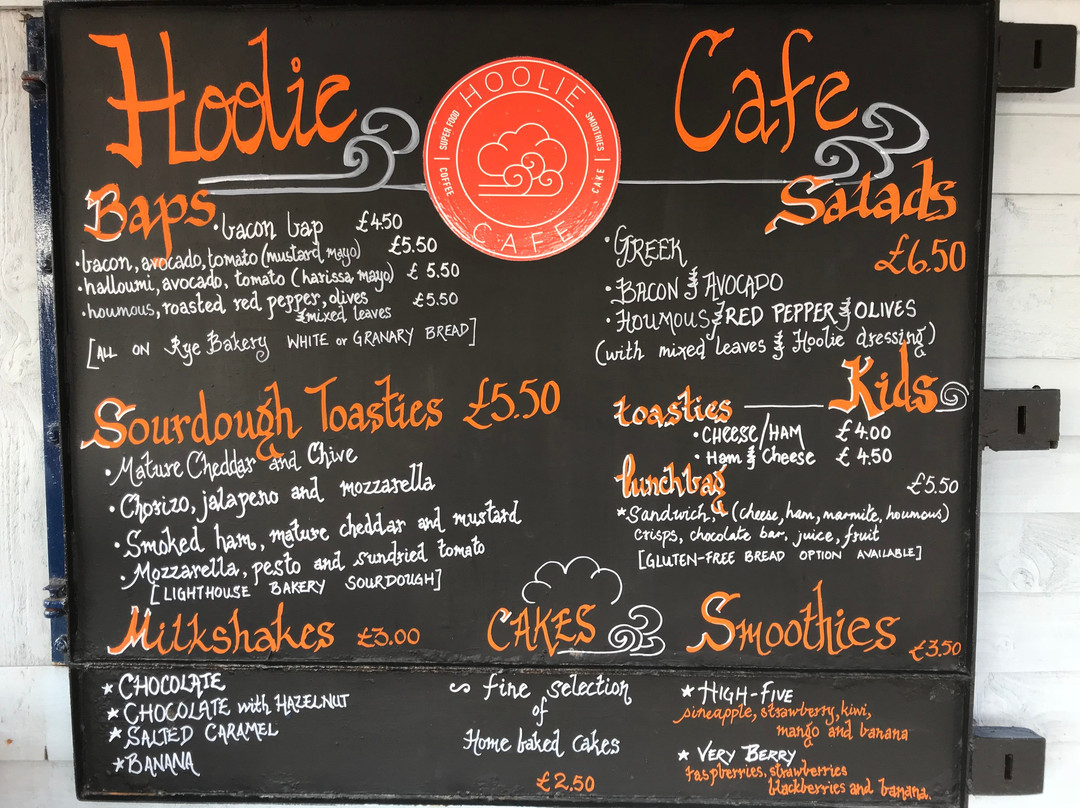 Hoolie Cafe
HOOLIE
SUPER FOOD
SMOOTHIES
COFFEE
CAKE
CAFE
Baps
• bacon bap £4.50
• bacon, avocado, tomato (mustard mayo) £5.50
• halloumi, avocado, tomato (harissa mayo) £5.50
• houmous, roasted red pepper, olives £5.50
& mixed leaves
[ALL ON Rye Bakery WHITE or GRANARY BREAD]
Salads
£6.50
• GREEK
• BACON & AVOCADO
• HOUMOUS & RED PEPPER & OLIVES
(with mixed leaves & Hoolie dressing)
Sourdough Toasties £5.50
• Mature Cheddar and Chive
• Chorizo, jalapeno and mozzarella
• Smoked ham, mature cheddar and mustard
• Mozzarella, pesto and sundried tomato
[LIGHTHOUSE BAKERY SOURDOUGH]
Kids
toasties
• CHEESE/HAM £4.00
• Ham & Cheese £4.50
lunchbag £5.50
* Sandwich, (cheese, ham, marmite, houmous)
crisps, chocolate bar, juice, fruit
[GLUTEN-FREE BREAD OPTION AVAILABLE]
Milkshakes £3.00
* CHOCOLATE
* CHOCOLATE with HAZELNUT
* SALTED CARAMEL
* BANANA
CAKES
~ fine selection
of
Home baked cakes
£2.50
Smoothies £3.50
* HIGH-FIVE
pineapple, strawberry, kiwi,
mango and banana
* VERY BERRY
raspberries, strawberries
blackberries and banana.